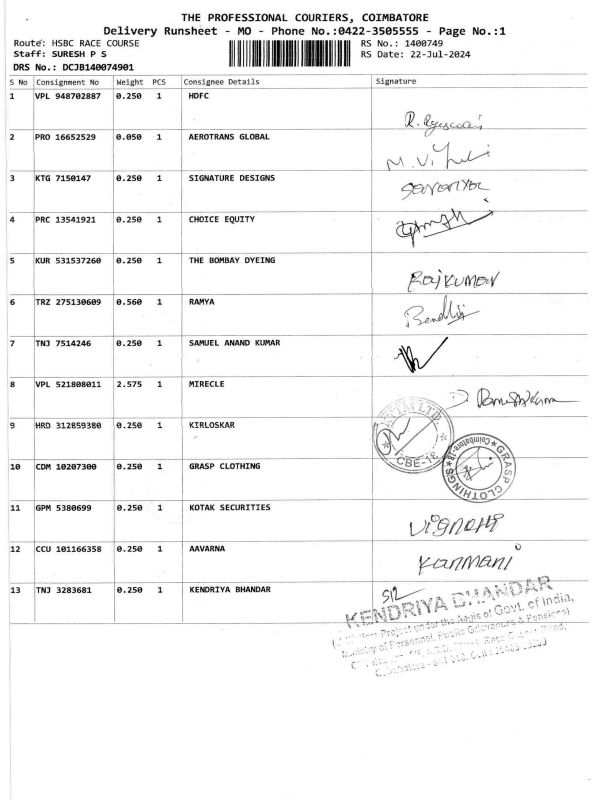 THE PROFESSIONAL COURIERS, COIMBATORE
Delivery Runsheet - MO - Phone No.:0422-3505555 - Page No.:1
Route: HSBC RACE COURSE RS No.: 1400749
Staff: SURESH P S RS Date: 22-Jul-2024
DRS No.: DCJB140074901
S No Consignment No Weight PCS Consignee Details Signature
1 VPL 948702887 0.250 1 HDFC
2 PRO 16652529 0.050 1 AEROTRANS GLOBAL
3 KTG 7150147 0.250 1 SIGNATURE DESIGNS
4 PRC 13541921 0.250 1 CHOICE EQUITY
5 KUR 531537260 0.250 1 THE BOMBAY DYEING
RajKumar
6 TRZ 275130609 0.560 1 RAMYA
7 TNJ 7514246 0.250 1 SAMUEL ANAND KUMAR
8 VPL 521808011 2.575 1 MIRECLE
9 HRD 312859380 0.250 1 KIRLOSKAR
CBE-18
10 CDM 10207300 0.250 1 GRASP CLOTHING
GRASP CLOTHINGS Coimbatore-18
11 GPM 5380699 0.250 1 KOTAK SECURITIES
12 CCU 101166358 0.250 1 AAVARNA
Kanmani
13 TNJ 3283681 0.250 1 KENDRIYA BHANDAR
KENDRIYA BHANDAR
Project under the Aegis of Govt. of India,
Ministry of Personnel, Public Grievances & Pensions)